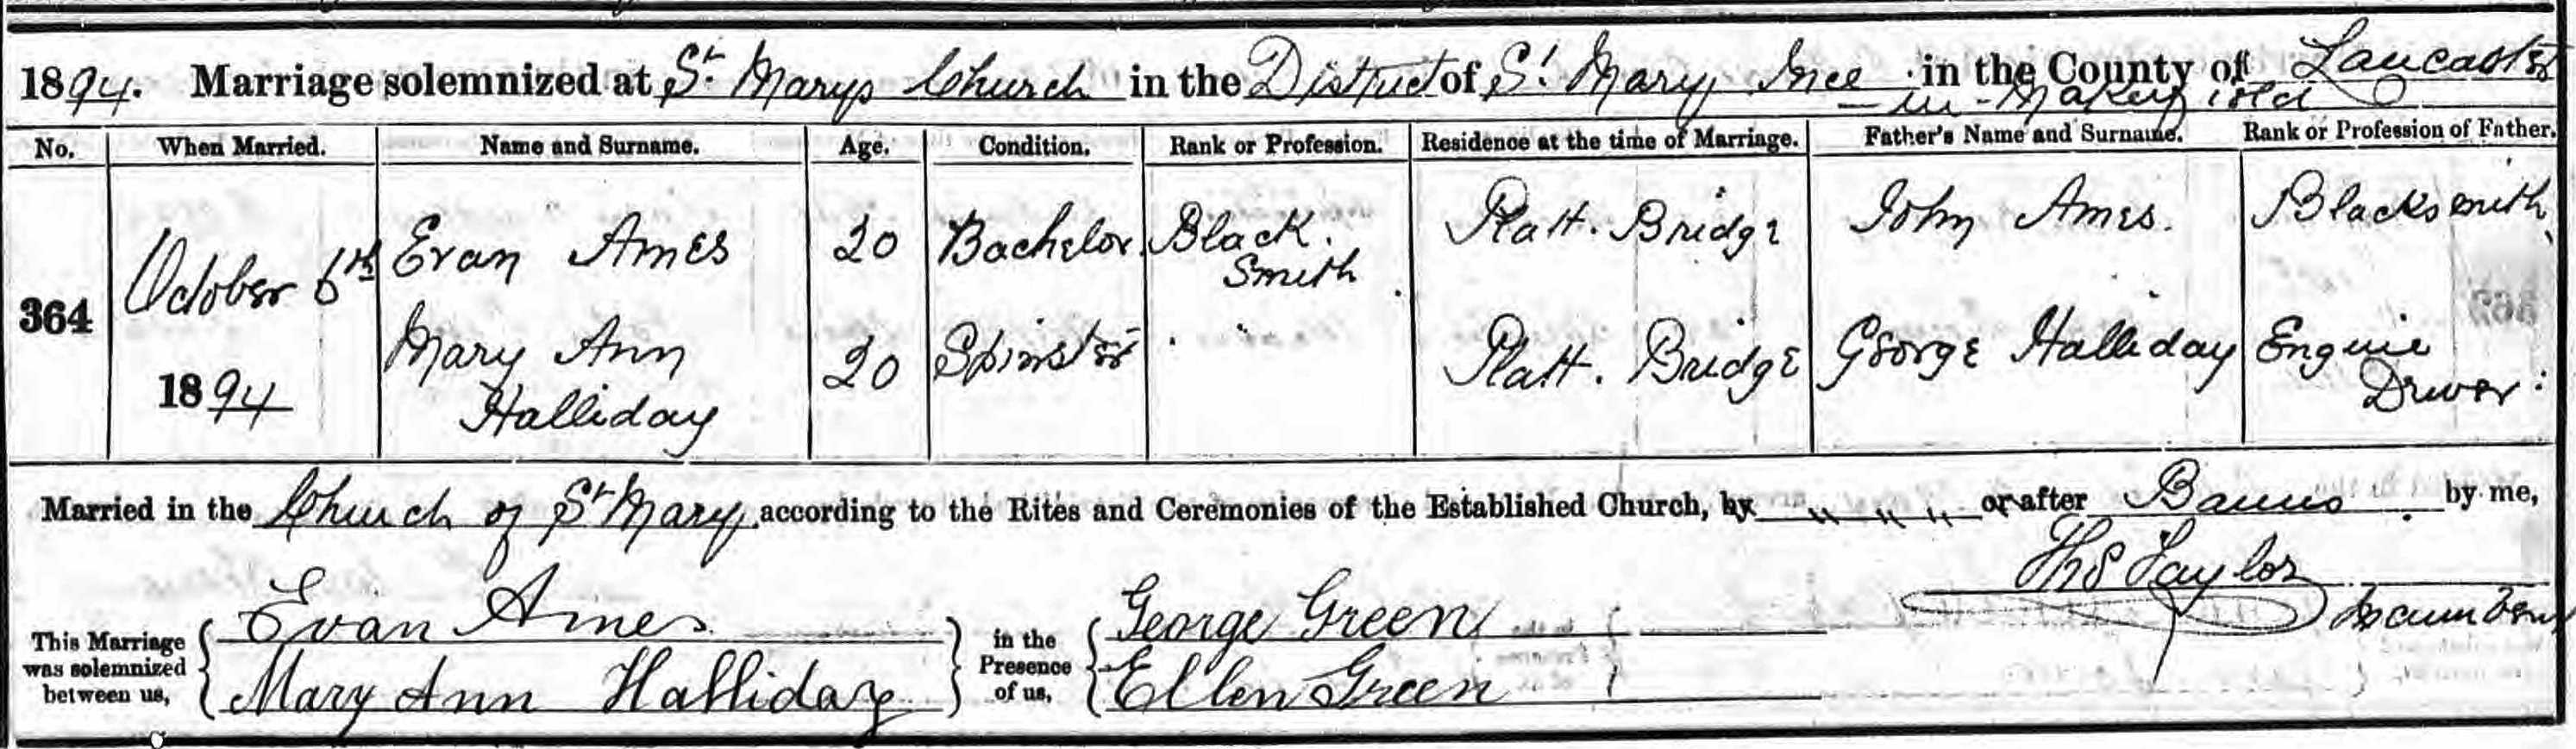 1894. Marriage solemnized at St. Marys Church in the District of St. Mary Ince in the County of Lancaster
-in-Makerfield
No. When Married. Name and Surname. Age. Condition. Rank or Profession. Residence at the time of Marriage. Father's Name and Surname. Rank or Profession of Father.
364 October 6th 1894 Evan Ames 20 Bachelor Black Smith Platt. Bridge John Ames. Blacksmith
Mary Ann Halliday 20 Spinster Platt. Bridge George Halliday Engine Driver
Married in the Church of St Mary according to the Rites and Ceremonies of the Established Church, by " " " or after Banns by me,
Thos Taylor
This Marriage was solemnized between us, { Evan Ames } in the Presence of us, { George Green
Mary Ann Halliday Ellen Green